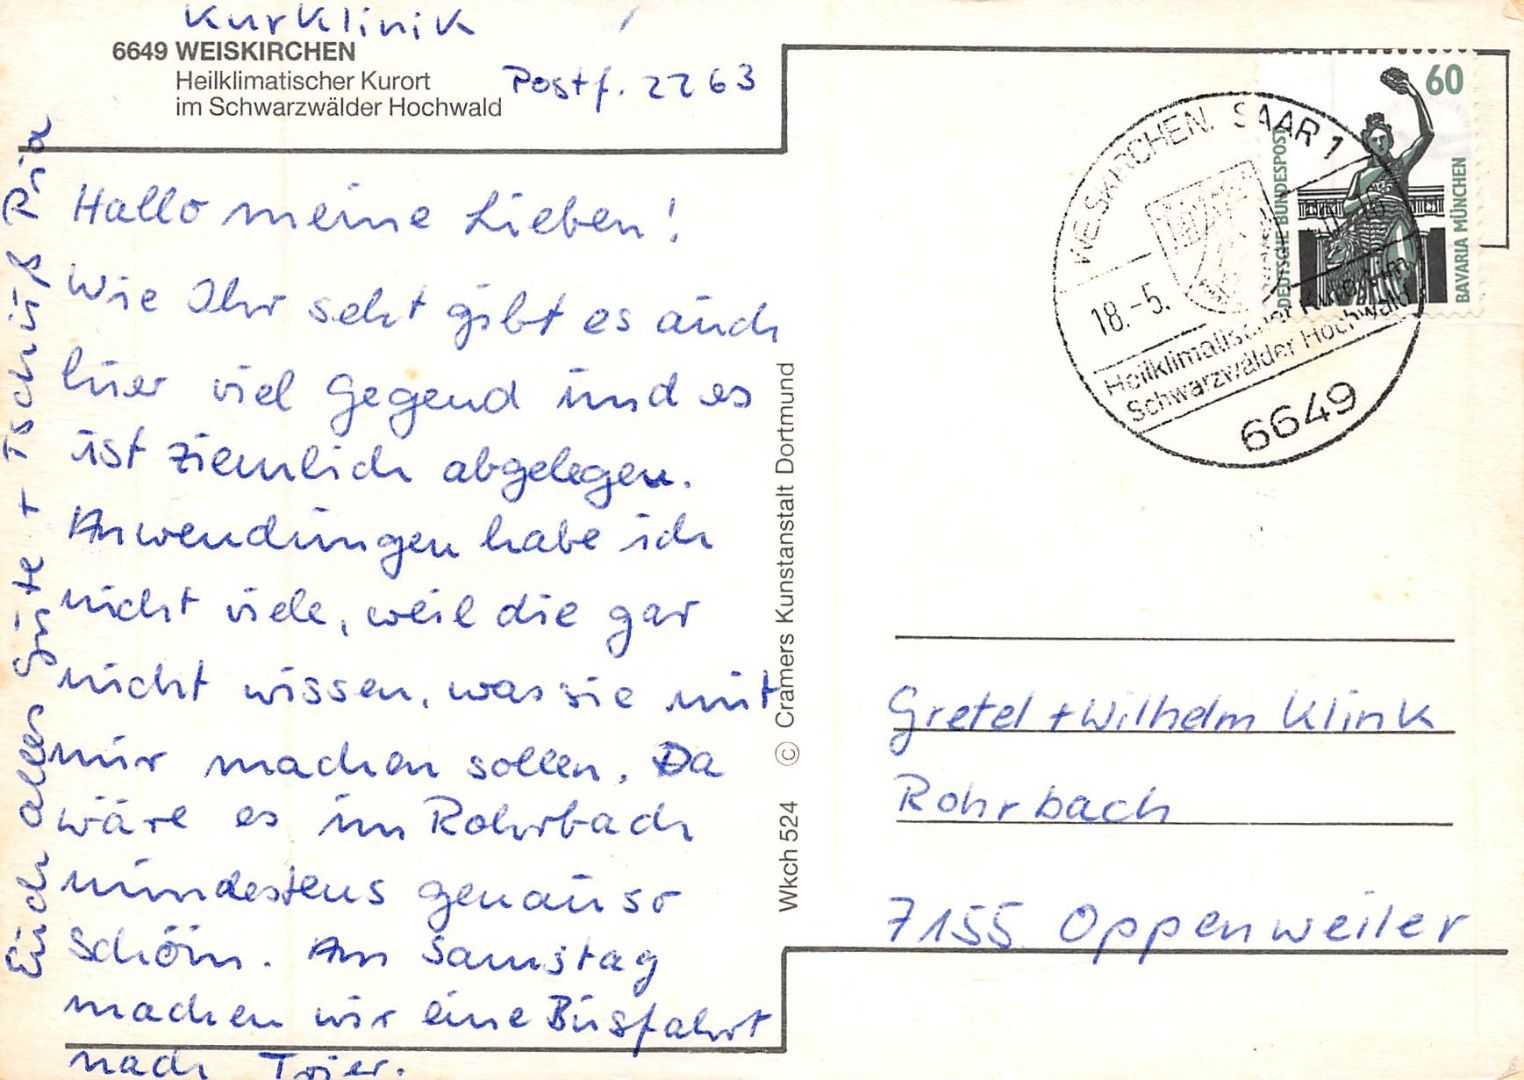 Kurklinik
6649 WEISKIRCHEN
Heilklimatischer Kurort
im Schwarzwälder Hochwald
Postf. 2263
Hallo meine Lieben!
Wie Ihr seht gibt es auch
hier viel Gegend und es
ist ziemlich abgelegen.
Anwendungen habe ich
nicht viele, weil die gar
nicht wissen, was sie mit
mir machen sollen. Da
wäre es in Rohrbach
mindestens genauso
schön. Am Samstag
machen wir eine Busfahrt
nach Trier.
Euch alles Gute + Tschüß Pia
Wkch 524 © Cramers Kunstanstalt Dortmund
60
DEUTSCHE BUNDESPOST
BAVARIA MÜNCHEN
WEISKIRCHEN, SAAR 1
18.-5.
Heilklimatischer Kurort im
Schwarzwälder Hochwald
6649
Gretel + Wilhelm Klink
Rohrbach
7155 Oppenweiler